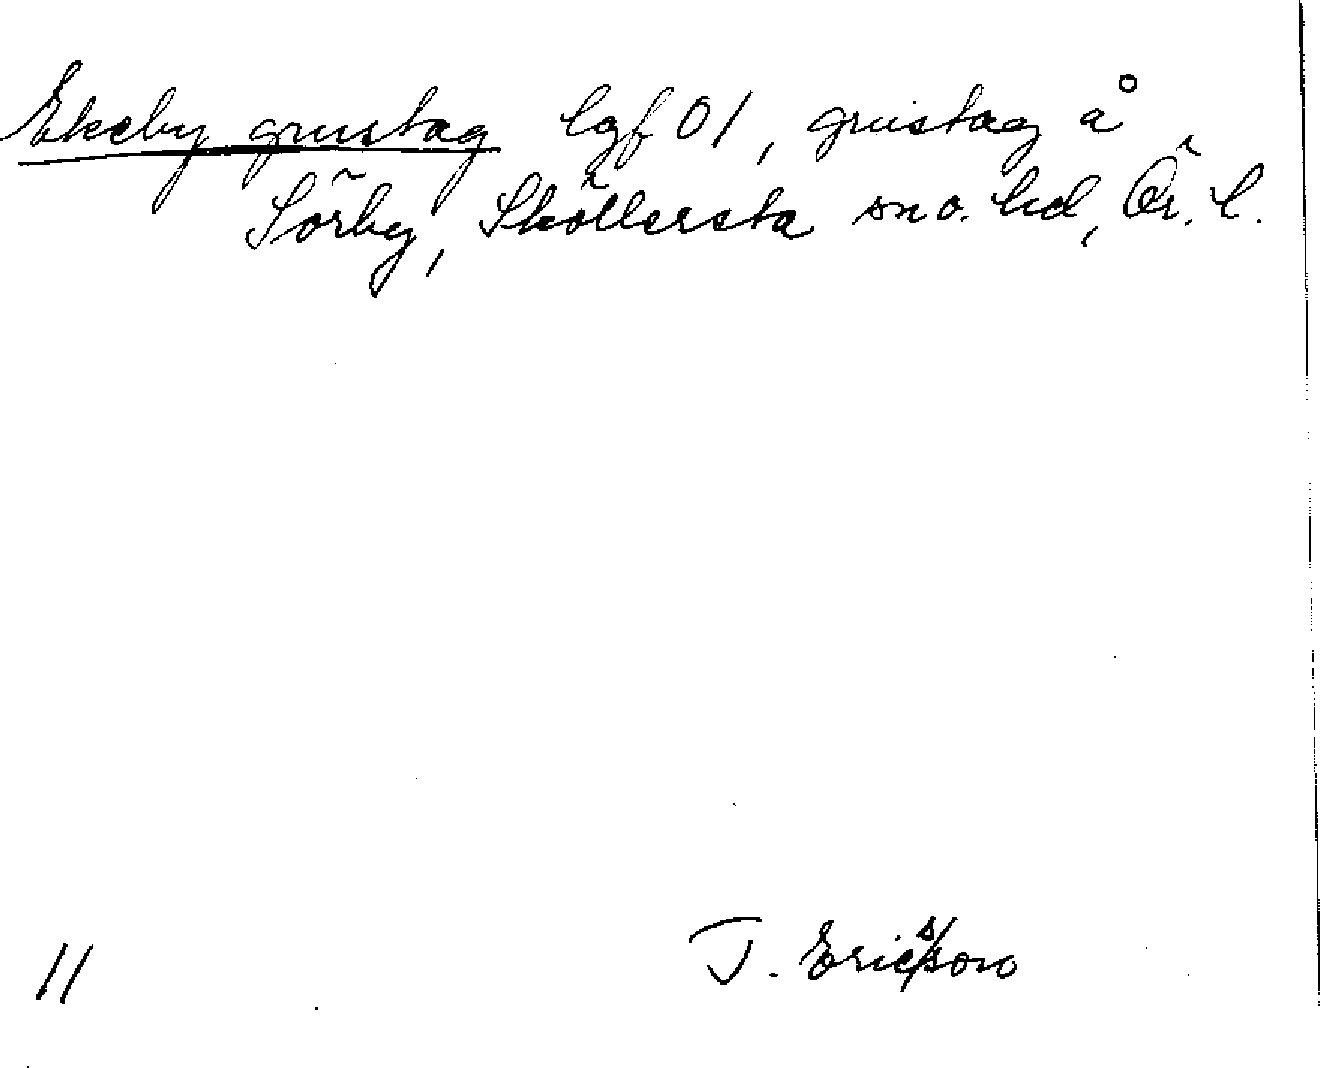 Ekeby grustag lgf 01, grustag å
Sörby, Sköllersta sn o. hd, Ör. l.
11 J. Ericsson